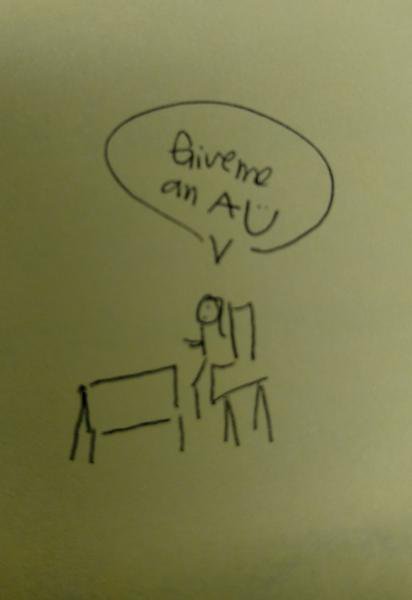 Give me
an A Ü